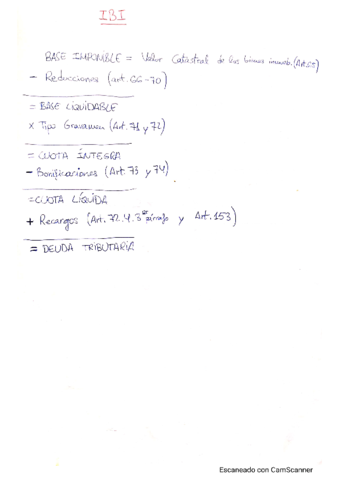 IBI
BASE IMPONIBLE = Valor Catastral de los bienes inmueb. (Art. 65)
- Reducciones (art. 66-70)
= BASE LIQUIDABLE
x Tipo Gravamen (Art. 71 y 72)
= CUOTA ÍNTEGRA
- Bonificaciones (Art. 73 y 74)
= CUOTA LÍQUIDA
+ Recargos (Art. 72.4.3º párrafo y Art. 153)
= DEUDA TRIBUTARIA
Escaneado con CamScanner